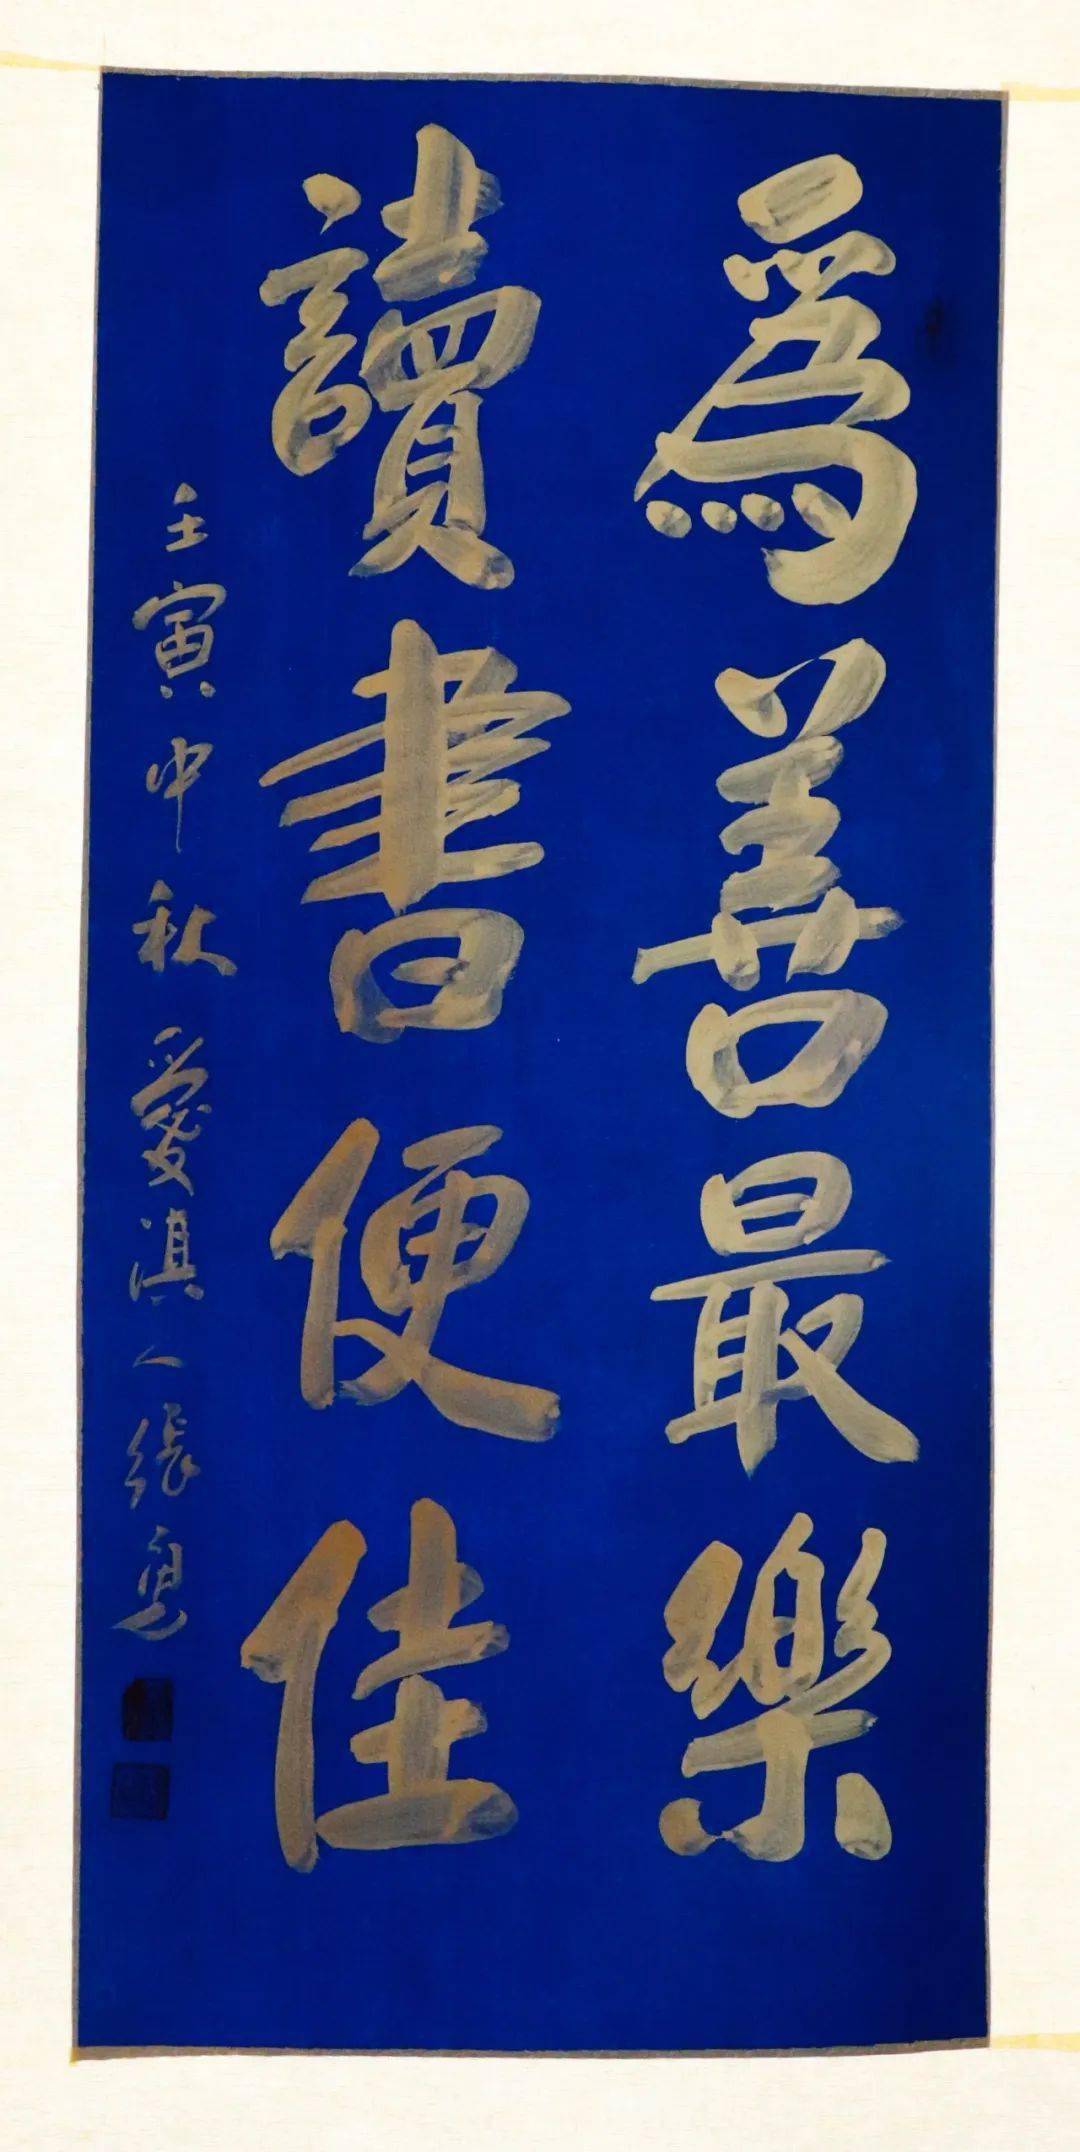 爲善最樂
讀書便佳
壬寅中秋愛滇人張勇